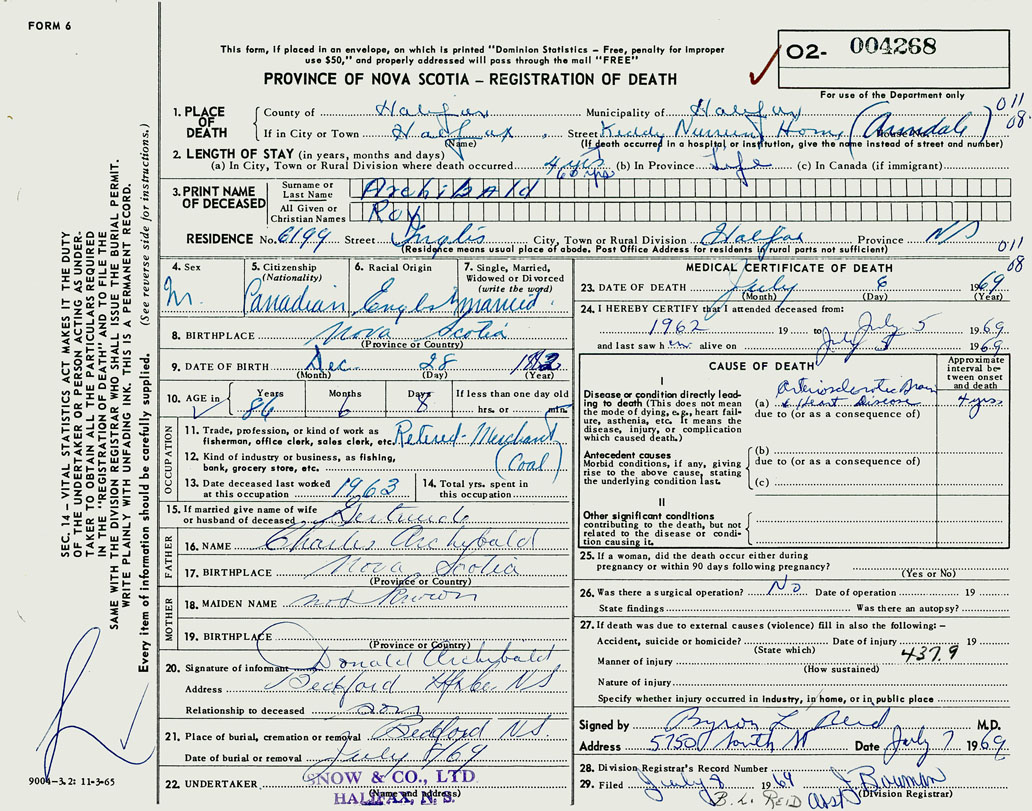 FORM 6
This form, if placed in an envelope, on which is printed "Dominion Statistics – Free, penalty for improper
use $50," and properly addressed will pass through the mail "FREE"
PROVINCE OF NOVA SCOTIA – REGISTRATION OF DEATH
O2- 004268
For use of the Department only
SEC. 14 – VITAL STATISTICS ACT MAKES IT THE DUTY
OF THE UNDERTAKER OR PERSON ACTING AS UNDER-
TAKER TO OBTAIN ALL THE PARTICULARS REQUIRED
IN THE "REGISTRATION OF DEATH" AND TO FILE THE
SAME WITH THE DIVISION REGISTRAR WHO SHALL ISSUE THE BURIAL PERMIT.
WRITE PLAINLY WITH UNFADING INK. THIS IS A PERMANENT RECORD.
Every item of information should be carefully supplied. (See reverse side for instructions.)
1. PLACE OF DEATH
County of Halifax Municipality of Halifax 011
If in City or Town Halifax Street Keddy Nursing Home (Armdale) 08.
(Name) (If death occurred in a hospital or institution, give the name instead of street and number)
2. LENGTH OF STAY (in years, months and days)
(a) In City, Town or Rural Division where death occurred 4 yrs (b) In Province Life (c) In Canada (if immigrant)
60 yrs
3. PRINT NAME OF DECEASED
Surname or Last Name ArchibAld
All Given or Christian Names Roy
RESIDENCE No. 6199 Street Inglis City, Town or Rural Division Halifax Province NS 011
(Residence means usual place of abode. Post Office Address for residents in rural parts not sufficient) 08
4. Sex
M.
5. Citizenship
(Nationality)
Canadian
6. Racial Origin
English
7. Single, Married,
Widowed or Divorced
(write the word)
married.
8. BIRTHPLACE Nova Scotia
(Province or Country)
9. DATE OF BIRTH Dec. 28
(Month) (Day) (Year)
10. AGE in Years Months Days If less than one day old
86 6 8 hrs. or min.
OCCUPATION
11. Trade, profession, or kind of work as
fisherman, office clerk, sales clerk, etc. Retired - Merchant
12. Kind of industry or business, as fishing,
bank, grocery store, etc. (Coal)
13. Date deceased last worked
at this occupation 1963
14. Total yrs. spent in
this occupation
15. If married give name of wife
or husband of deceased Gertrude
FATHER
16. NAME Charles Archibald
17. BIRTHPLACE Nova Scotia
(Province or Country)
MOTHER
18. MAIDEN NAME not known
19. BIRTHPLACE
(Province or Country)
20. Signature of informant Donald Archibald
Address Bedford Hfx Co. NS
Relationship to deceased son
21. Place of burial, cremation or removal Bedford N.S.
Date of burial or removal July 8/69
22. UNDERTAKER SNOW & CO., LTD
(Name and address)
HALIFAX, N. S.
9004–3.2: 11-3-65
MEDICAL CERTIFICATE OF DEATH
23. DATE OF DEATH July 6 1969
(Month) (Day) (Year)
24. I HEREBY CERTIFY that I attended deceased from:
1962 19 to July 5 1969
and last saw him alive on July 5 1969
CAUSE OF DEATH
Approximate interval between onset and death
I
Disease or condition directly lead-
ing to death (This does not mean
the mode of dying, e.g., heart fail-
ure, asthenia, etc. It means the
disease, injury, or complication
which caused death.)
Arteriosclerotic Brain
(a) & Heart Disease 4 yrs
due to (or as a consequence of)
Antecedent causes
Morbid conditions, if any, giving
rise to the above cause, stating
the underlying condition last.
(b)
due to (or as a consequence of)
(c)
II
Other significant conditions
contributing to the death, but not
related to the disease or condi-
tion causing it.
25. If a woman, did the death occur either during
pregnancy or within 90 days following pregnancy?
(Yes or No)
26. Was there a surgical operation? No Date of operation 19
State findings Was there an autopsy?
27. If death was due to external causes (violence) fill in also the following: –
Accident, suicide or homicide? Date of injury 19
(State which) 437.9
Manner of injury
(How sustained)
Nature of injury
Specify whether injury occurred in Industry, in home, or in public place
Signed by Byron L Reid M.D.
Address 5750 South St Date July 7 1969
28. Division Registrar's Record Number
29. Filed July 8 1969 J Bowman
B. L. REID Asst (Division Registrar)